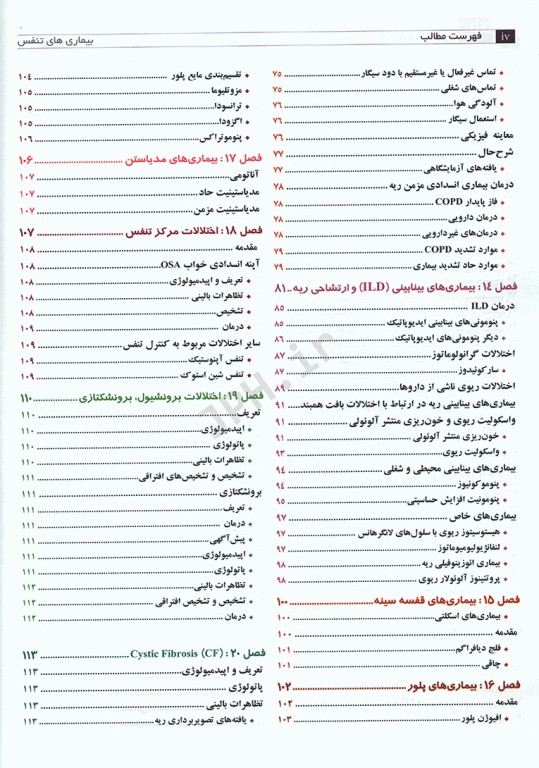 iv فهرست مطالب
بیماری های تنفس
تماس غیرفعال یا غیرمستقیم با دود سیگار ۷۵
تماس‌های شغلی ۷۵
آلودگی هوا ۷۶
استعمال سیگار ۷۶
معاینه فیزیکی ۷۶
شرح‌حال ۷۷
یافته‌های آزمایشگاهی ۷۷
درمان بیماری انسدادی مزمن ریه ۷۸
فاز پایدار COPD ۷۸
درمان دارویی ۷۸
درمان‌های غیردارویی ۷۸
موارد تشدید COPD ۷۹
موارد حاد تشدید بیماری ۷۹
فصل ۱۴: بیماری‌های بینابینی (ILD) و ارتشاحی ریه ۸۱
درمان ILD ۸۵
پنومونی‌های بینابینی ایدیوپاتیک ۸۵
دیگر پنومونی‌های ایدیوپاتیک ۸۶
اختلالات گرانولوماتوز ۸۷
سارکوئیدوز ۸۷
اختلالات ریوی ناشی از داروها ۸۹
بیماری‌های بینابینی ریه در ارتباط با اختلالات بافت همبند ۹۱
واسکولیت ریوی و خون‌ریزی منتشر آلوئولی ۹۱
خون‌ریزی منتشر آلوئولی ۹۱
واسکولیت ریوی ۹۳
بیماری‌های بینابینی محیطی و شغلی ۹۴
پنوموکونیوز ۹۴
پنومونیت افزایش حساسیتی ۹۵
بیماری‌های خاص ۹۷
هیستوسیتوز ریوی با سلول‌های لانگرهانس ۹۷
لنفانژیولیومیوماتوز ۹۷
بیماری ائوزینوفیلی ریه ۹۸
پروتئینوز آلوئولار ریوی ۹۸
فصل ۱۵: بیماری‌های قفسه سینه ۱۰۰
بیماری‌های اسکلتی ۱۰۰
مقدمه ۱۰۰
فلج دیافراگم ۱۰۱
چاقی ۱۰۱
فصل ۱۶: بیماری‌های پلور ۱۰۲
مقدمه ۱۰۲
افیوژن پلور ۱۰۳
تقسیم‌بندی مایع پلور ۱۰۴
مزوتلیوما ۱۰۵
ترانسودا ۱۰۵
اگزودا ۱۰۵
پنوموتراکس ۱۰۶
فصل ۱۷: بیماری‌های مدیاستن ۱۰۶
آناتومی ۱۰۷
مدیاستینیت حاد ۱۰۷
مدیاستینیت مزمن ۱۰۷
فصل ۱۸: اختلالات مرکز تنفس ۱۰۷
مقدمه ۱۰۸
آپنه انسدادی خواب OSA ۱۰۸
تعریف و اپیدمیولوژی ۱۰۸
تظاهرات بالینی ۱۰۸
تشخیص ۱۰۸
درمان ۱۰۹
سایر اختلالات مربوط به کنترل تنفس ۱۰۹
تنفس آپنوستیک ۱۰۹
تنفس شین استوک ۱۰۹
فصل ۱۹: اختلالات برونشیول، برونشکتازی ۱۱۰
تعریف ۱۱۰
اپیدمیولوژی ۱۱۰
پاتولوژی ۱۱۰
تظاهرات بالینی ۱۱۰
تشخیص و تشخیص‌های افتراقی ۱۱۱
برونشکتازی ۱۱۱
تعریف ۱۱۱
درمان ۱۱۱
پیش‌آگهی ۱۱۱
اپیدمیولوژی ۱۱۱
پاتولوژی ۱۱۱
تظاهرات بالینی ۱۱۲
تشخیص و تشخیص افتراقی ۱۱۲
درمان ۱۱۲
فصل ۲۰: Cystic Fibrosis (CF) ۱۱۳
تعریف و اپیدمیولوژی ۱۱۳
پاتولوژی ۱۱۳
تظاهرات بالینی ۱۱۳
یافته‌های تصویربرداری ریه ۱۱۳